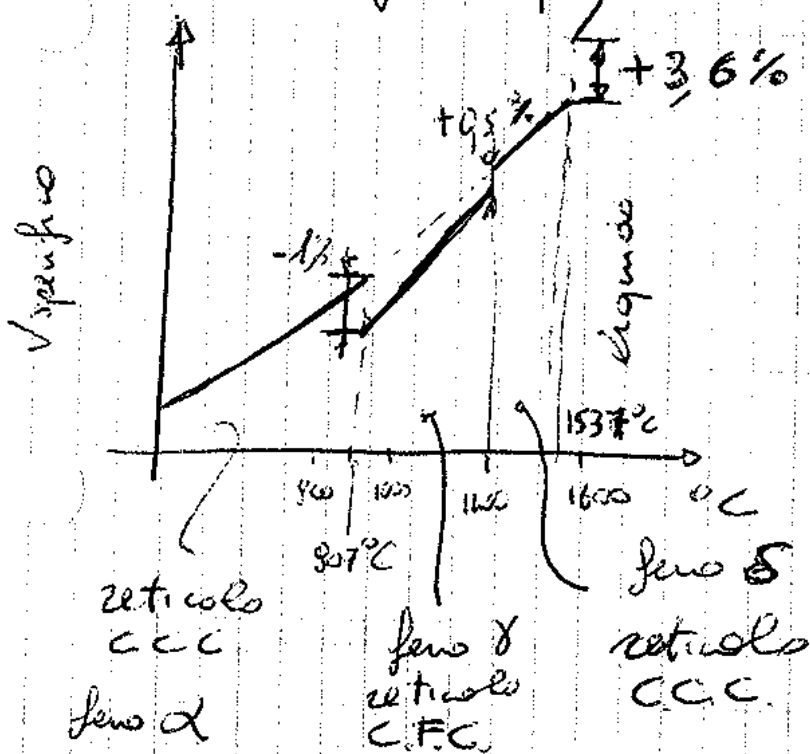 +3,6%
+0,5%
-1%
V specifico
liquido
1537°C
900 1000 1400 1600 °C
907°C
reticolo
C C C
ferro α
ferro γ
reticolo
C.F.C.
ferro δ
reticolo
C.C.C.